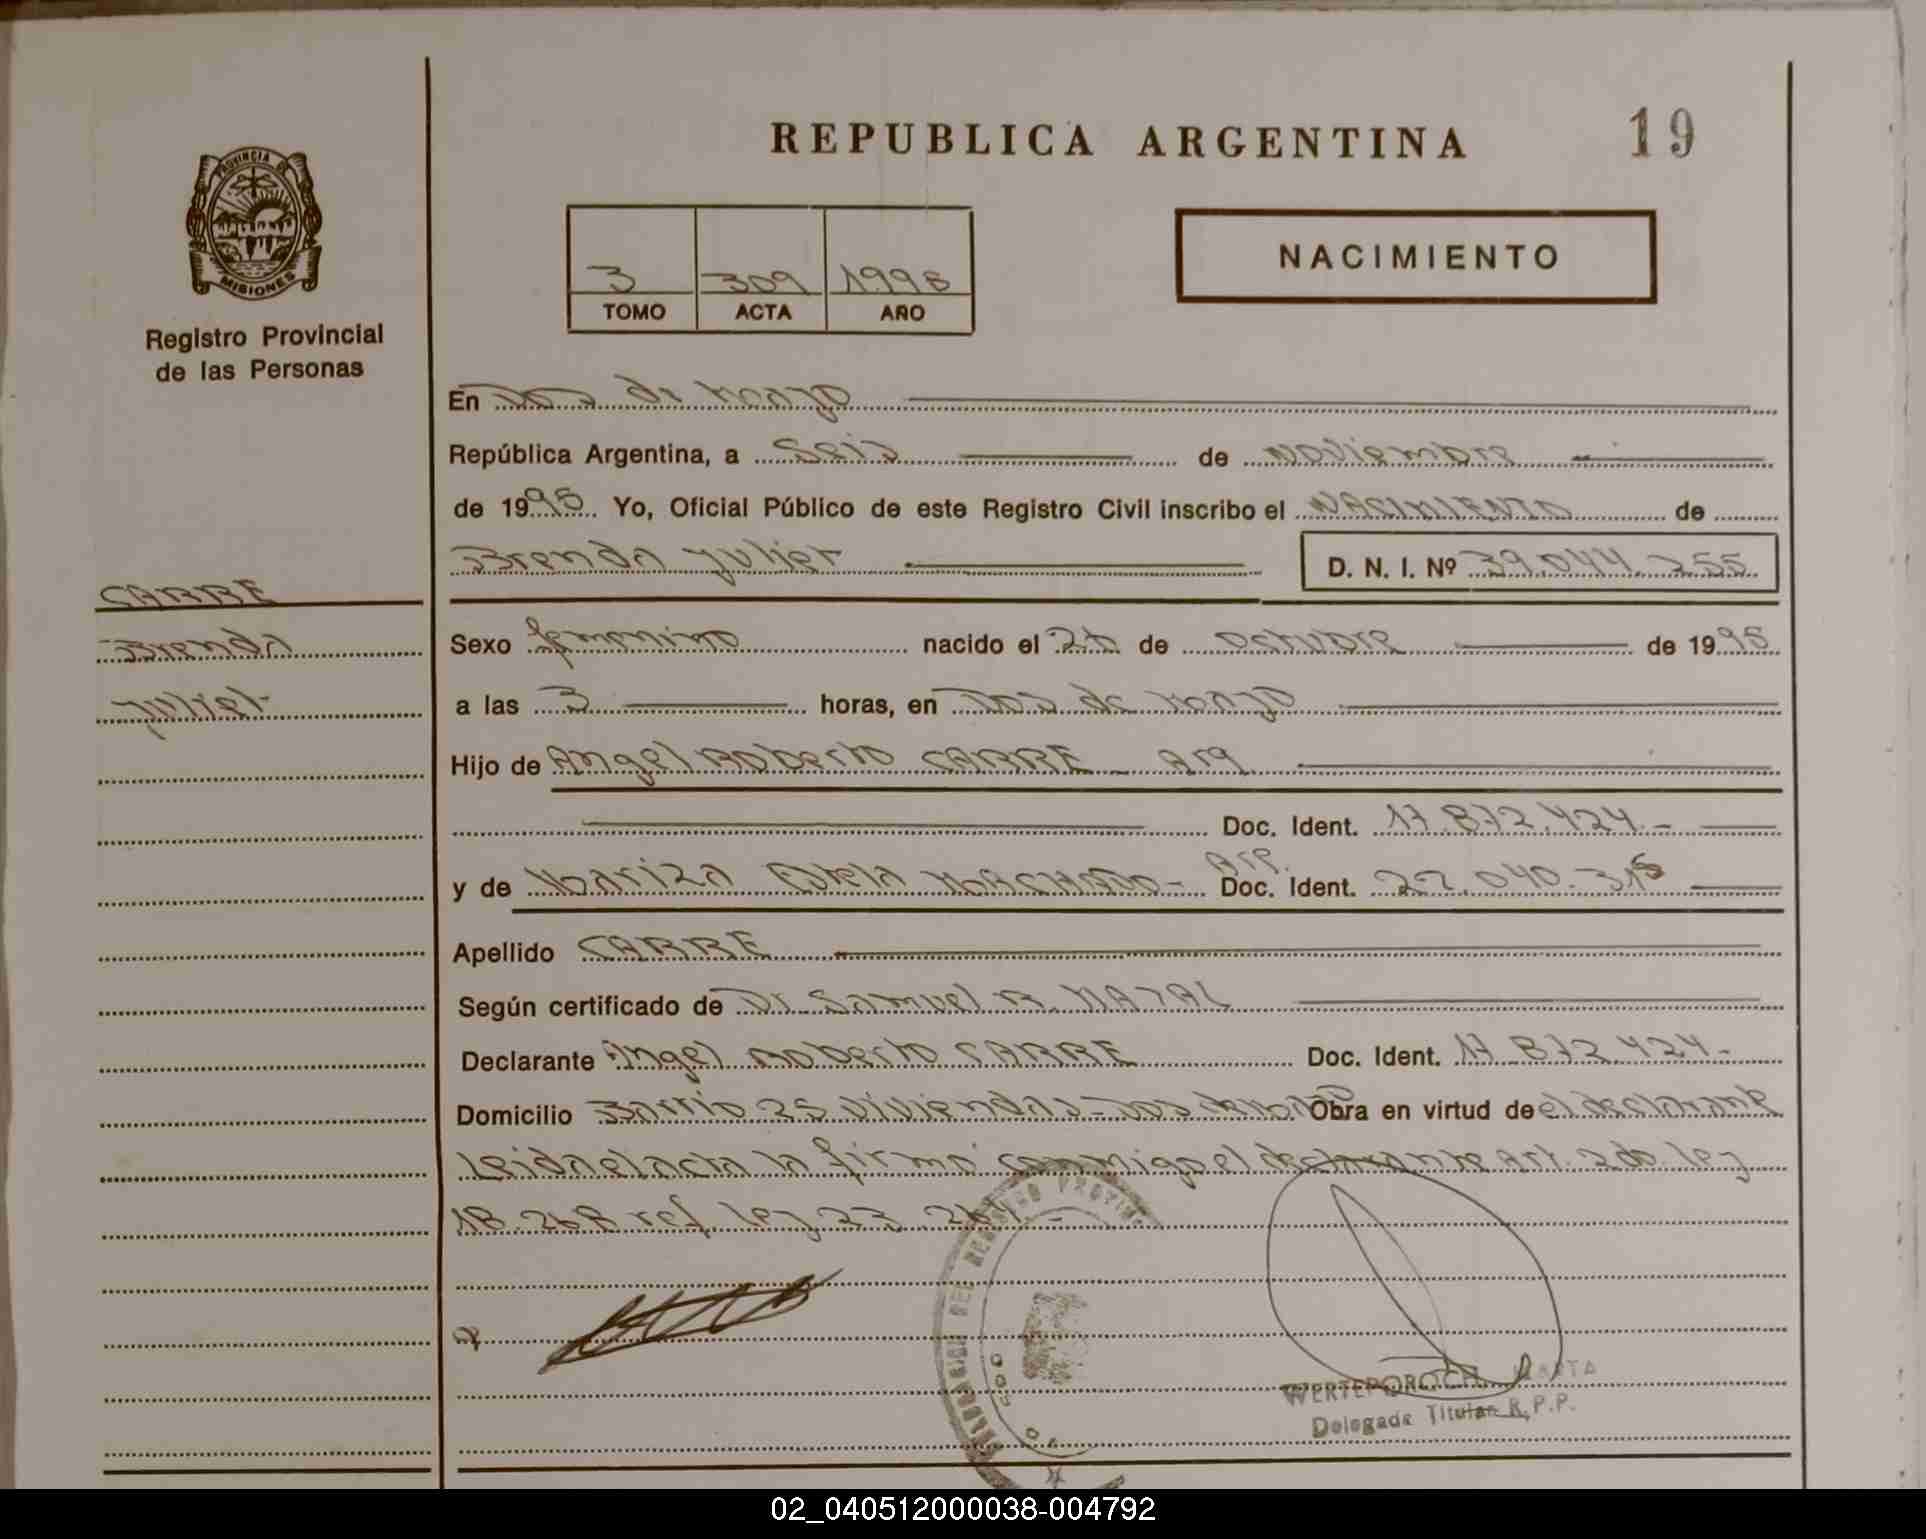 REPUBLICA ARGENTINA
19
PROVINCIA DE
MISIONES
Registro Provincial
de las Personas
3 309 1995
TOMO ACTA AÑO
NACIMIENTO
En Dos de Mayo
República Argentina, a Seis de Noviembre
de 1995. Yo, Oficial Público de este Registro Civil inscribo el NACIMIENTO de
Brenda Juliet D. N. I. Nº 39.044.255
CARRE
Brenda
Juliet
Sexo femenino nacido el 26 de Octubre de 1995
a las 3 horas, en Dos de Mayo
Hijo de Angel Roberto CARRE - Arg
Doc. Ident. 17.872.424.-
y de Mariza Estela MACHADO - Arg. Doc. Ident. 22.040.315
Apellido CARRE
Según certificado de Dr. Samuel R. NATAL
Declarante Angel Roberto CARRE Doc. Ident. 17.872.424.-
Domicilio Barrio 25 Viviendas - Dos de Mayo Obra en virtud de el declarante
Leida el acta la firmó conmigo el declarante Art. 2do. ley
18.268 ref. ley 23.264.-
REGISTRO PROVIN
DEL
WERTEPOROCH MARTA
Delegada Titular R.P.P.
02_040512000038-004792